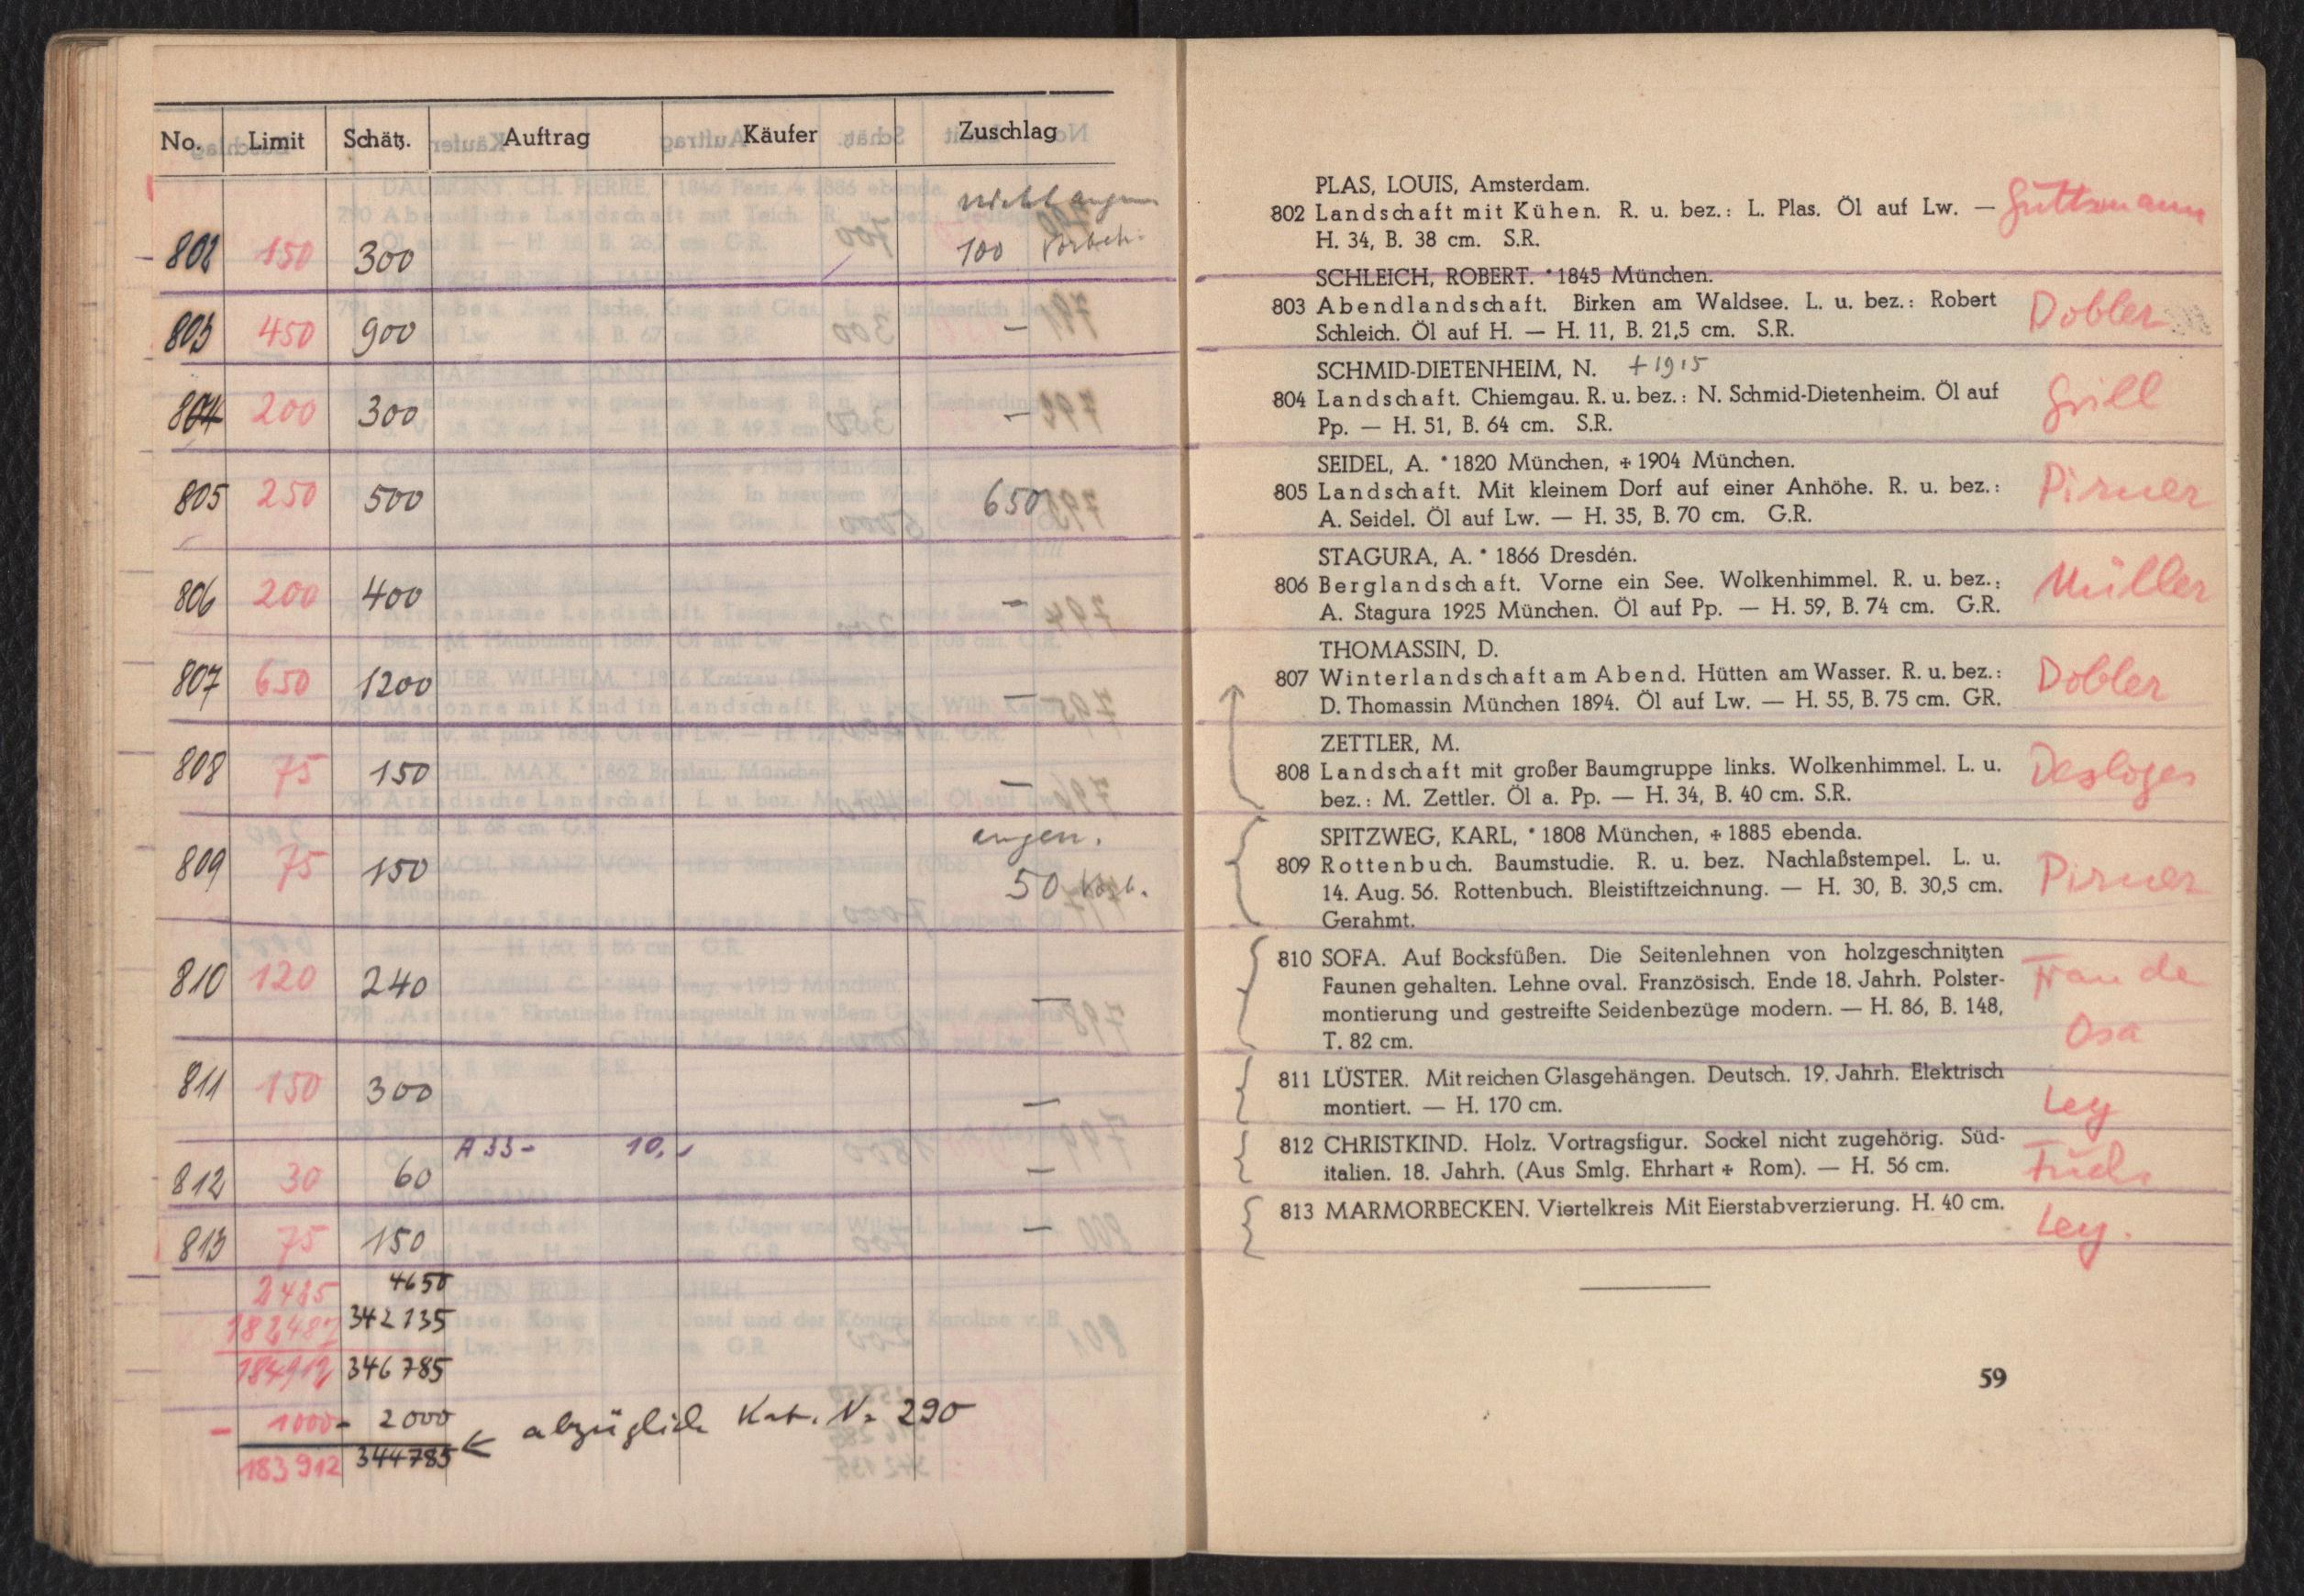 No. Limit Schätz. Auftrag Käufer Zuschlag
nicht angen
802 150 300 100 Vorbeh.
803 450 900 —
804 200 300 —
805 250 500 650
806 200 400 —
807 650 1200 —
808 75 150 —
angen.
809 75 150 50 Vorb.
810 120 240 —
811 150 300 —
A 33- 10,-
812 30 60 —
813 75 150 —
2425 4650
182487 342135
184912 346785
- 1000- 2000
← abzüglich Kat. No 290
183912 344785
PLAS, LOUIS, Amsterdam.
802 Landschaft mit Kühen. R. u. bez.: L. Plas. Öl auf Lw. — Guttmann
H. 34, B. 38 cm. S.R.
SCHLEICH, ROBERT. * 1845 München.
803 Abendlandschaft. Birken am Waldsee. L. u. bez.: Robert Dobler
Schleich. Öl auf H. — H. 11, B. 21,5 cm. S.R.
SCHMID-DIETENHEIM, N. + 1915
804 Landschaft. Chiemgau. R. u. bez.: N. Schmid-Dietenheim. Öl auf Grill
Pp. — H. 51, B. 64 cm. S.R.
SEIDEL, A. * 1820 München, + 1904 München.
805 Landschaft. Mit kleinem Dorf auf einer Anhöhe. R. u. bez.: Pirner
A. Seidel. Öl auf Lw. — H. 35, B. 70 cm. G.R.
STAGURA, A. * 1866 Dresdén.
806 Berglandschaft. Vorne ein See. Wolkenhimmel. R. u. bez.: Müller
A. Stagura 1925 München. Öl auf Pp. — H. 59, B. 74 cm. G.R.
THOMASSIN, D.
807 Winterlandschaft am Abend. Hütten am Wasser. R. u. bez.: Dobler
D. Thomassin München 1894. Öl auf Lw. — H. 55, B. 75 cm. GR.
ZETTLER, M.
808 Landschaft mit großer Baumgruppe links. Wolkenhimmel. L. u. Desloges
bez.: M. Zettler. Öl a. Pp. — H. 34, B. 40 cm. S.R.
SPITZWEG, KARL, * 1808 München, + 1885 ebenda.
809 Rottenbuch. Baumstudie. R. u. bez. Nachlaßstempel. L. u. Pirner
14. Aug. 56. Rottenbuch. Bleistiftzeichnung. — H. 30, B. 30,5 cm.
Gerahmt.
810 SOFA. Auf Bocksfüßen. Die Seitenlehnen von holzgeschnitzten
Faunen gehalten. Lehne oval. Französisch. Ende 18. Jahrh. Polster- Frau de
montierung und gestreifte Seidenbezüge modern. — H. 86, B. 148, Osa
T. 82 cm.
811 LÜSTER. Mit reichen Glasgehängen. Deutsch. 19. Jahrh. Elektrisch
montiert. — H. 170 cm. Ley
812 CHRISTKIND. Holz. Vortragsfigur. Sockel nicht zugehörig. Süd-
italien. 18. Jahrh. (Aus Smlg. Ehrhart + Rom). — H. 56 cm. Fuchs
813 MARMORBECKEN. Viertelkreis Mit Eierstabverzierung. H. 40 cm. Ley.
59